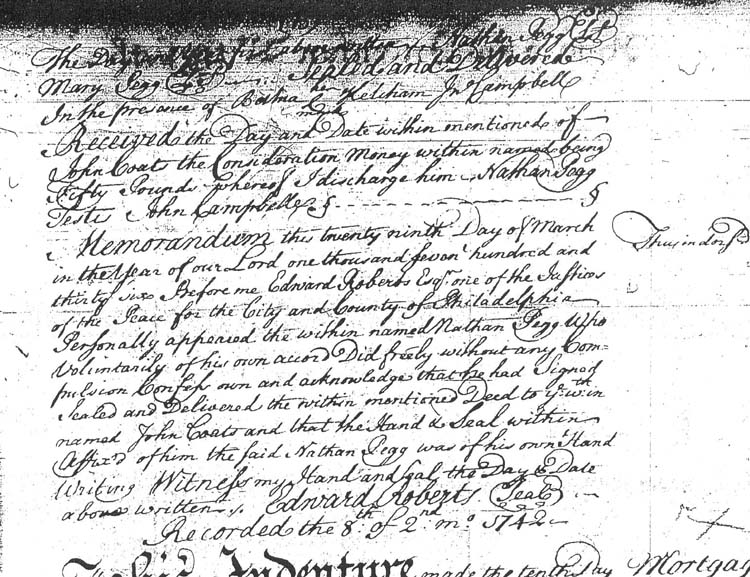 The Day and year first above written Nathan Pegg
Mary Pegg Sealed and Delivered
In the presence of Ketcham Jno Campbell
mark
Received the Day and Date within mentioned of
John Coat the Consideration Money within named being
Fifty Pounds whereof I discharge him Nathan Pegg
Teste John Campbell § - - - - - - - - - - §
Memorandum this twenty ninth Day of March
in the Year of our Lord one thousand seven hundred and
thirty six Before me Edward Roberts Esqr one of the Justices
of the Peace for the City and County of Philadelphia
Personally appeared the within named Nathan Pegg Who
Voluntarily of his own accord Did freely without any Com=
pulsion Confess own and acknowledge that he had Signed
Sealed and Delivered the within mentioned Deed to ye within
named John Coats and that the Hand & Seal within
Affix'd of him the said Nathan Pegg was of his own Hand
Writing Witness my Hand and Seal the Day & Date
above written Edward Roberts Seal
Recorded the 8th of 2nd mo 1742
Thus indors'd
This Indenture made the tenth Day
Mortgag